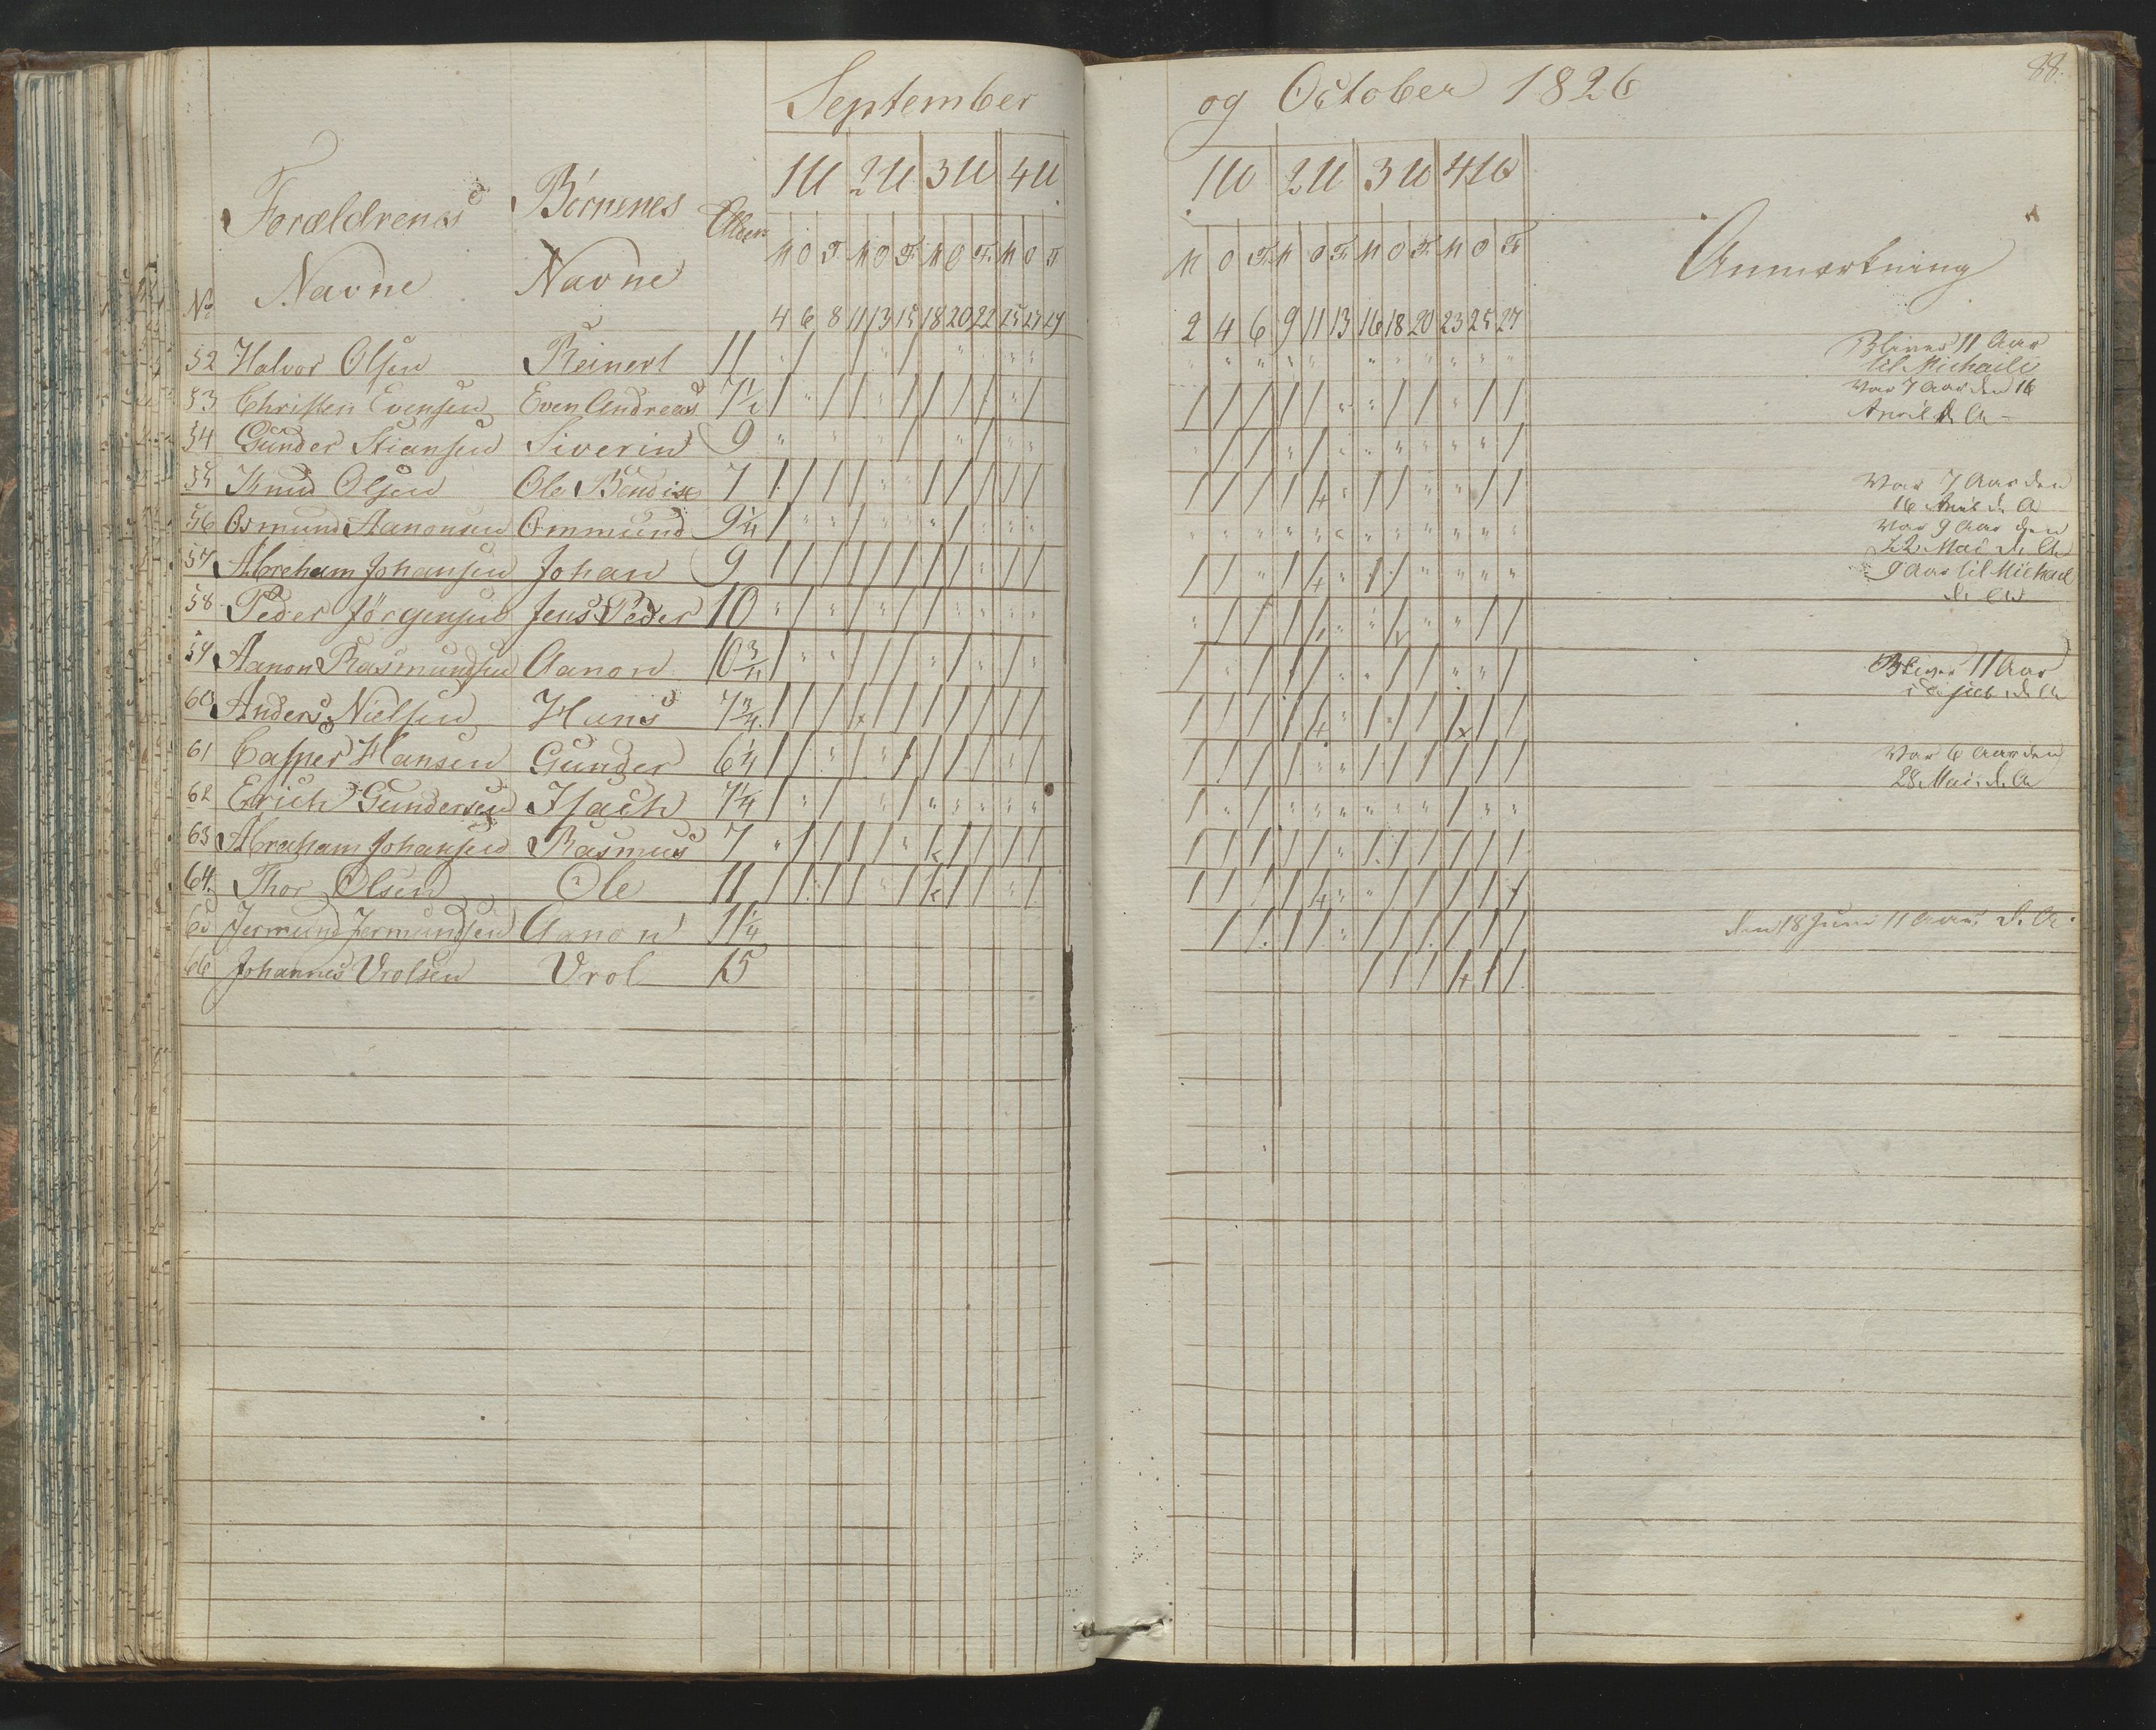 September
og October 1826
88.
1 U 2 U 3 U 4 U
1 U 2 U 3 U 4 U
No Forældrenes Navne Børnenes Navne Alder
M O F M O F M O F M O F
M O F M O F M O F M O F
Anmærkning
4 6 8 11 13 15 18 20 22 25 27 29
2 4 6 9 11 13 16 18 20 23 25 27
52 Halvor Olsen Reinert 11
Bliver 11 Aar
til Michaili
53 Christen Evensen Even Andreas 7 1/2
Var 7 Aar den 16
April d. A
54 Gunder Stiansen Siverin 9
55 Knud Olsen Ole Bendix 7
Var 7 Aar den
16 April d. A
56 Osmund Aanonsen Ommund 9 1/4
Var 9 Aar den
22 Mai d. A
57 Abreham Johansen Johan 9
9 Aar til Michael
d. A
58 Peder Jørgensen Jens Peder 10
59 Aanon Rasmundsen Aanon 10 3/4
Bliver 11 Aar
d. A
60 Anders Nielsen Hans 7 3/4
61 Casper Hansen Gunder 6 1/4
Var 6 Aar den
28 Mai d. A
62 Erich Gundersen Isach 7 1/4
63 Abraham Johansen Rasmus 7
64 Thor Olsen Ole 11
65 Jermund Jermundsen Aanon 11 1/4
den 18 Juni 11 Aar d. A.
66 Johannes Vrolsen Vrol 15